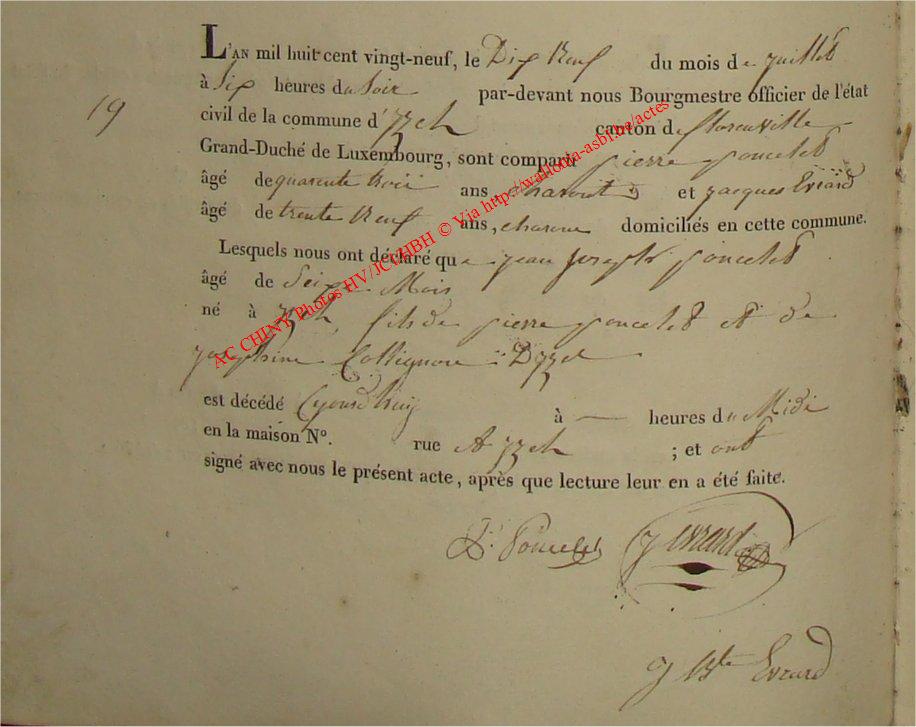 L'AN mil huit cent vingt-neuf, le Dix Neuf du mois de juillet
19
à Six heures du Soir par-devant nous Bourgmestre officier de l'état
civil de la commune d'yzel canton de florenville
Grand-Duché de Luxembourg, sont comparu pierre poncelet
âgé de quarente trois ans et jacques Evrard
âgé de trente Neuf ans, domiciliés en cette commune.
Lesquels nous ont déclaré que jean joseph poncelet
âgé de Seize Mois
né à yzel, fils de pierre poncelet et de
josephine Collignon Dyzel
est décédé à — heures du Midi
en la maison N°. rue A yzel ; et ont
signé avec nous le présent acte, après que lecture leur en a été faite.
P. Poncelet J evrard
J Bte Evrard
AC CHINY Photos HV/JCC/HBH © Via http://wallonia-asbl.be/actes